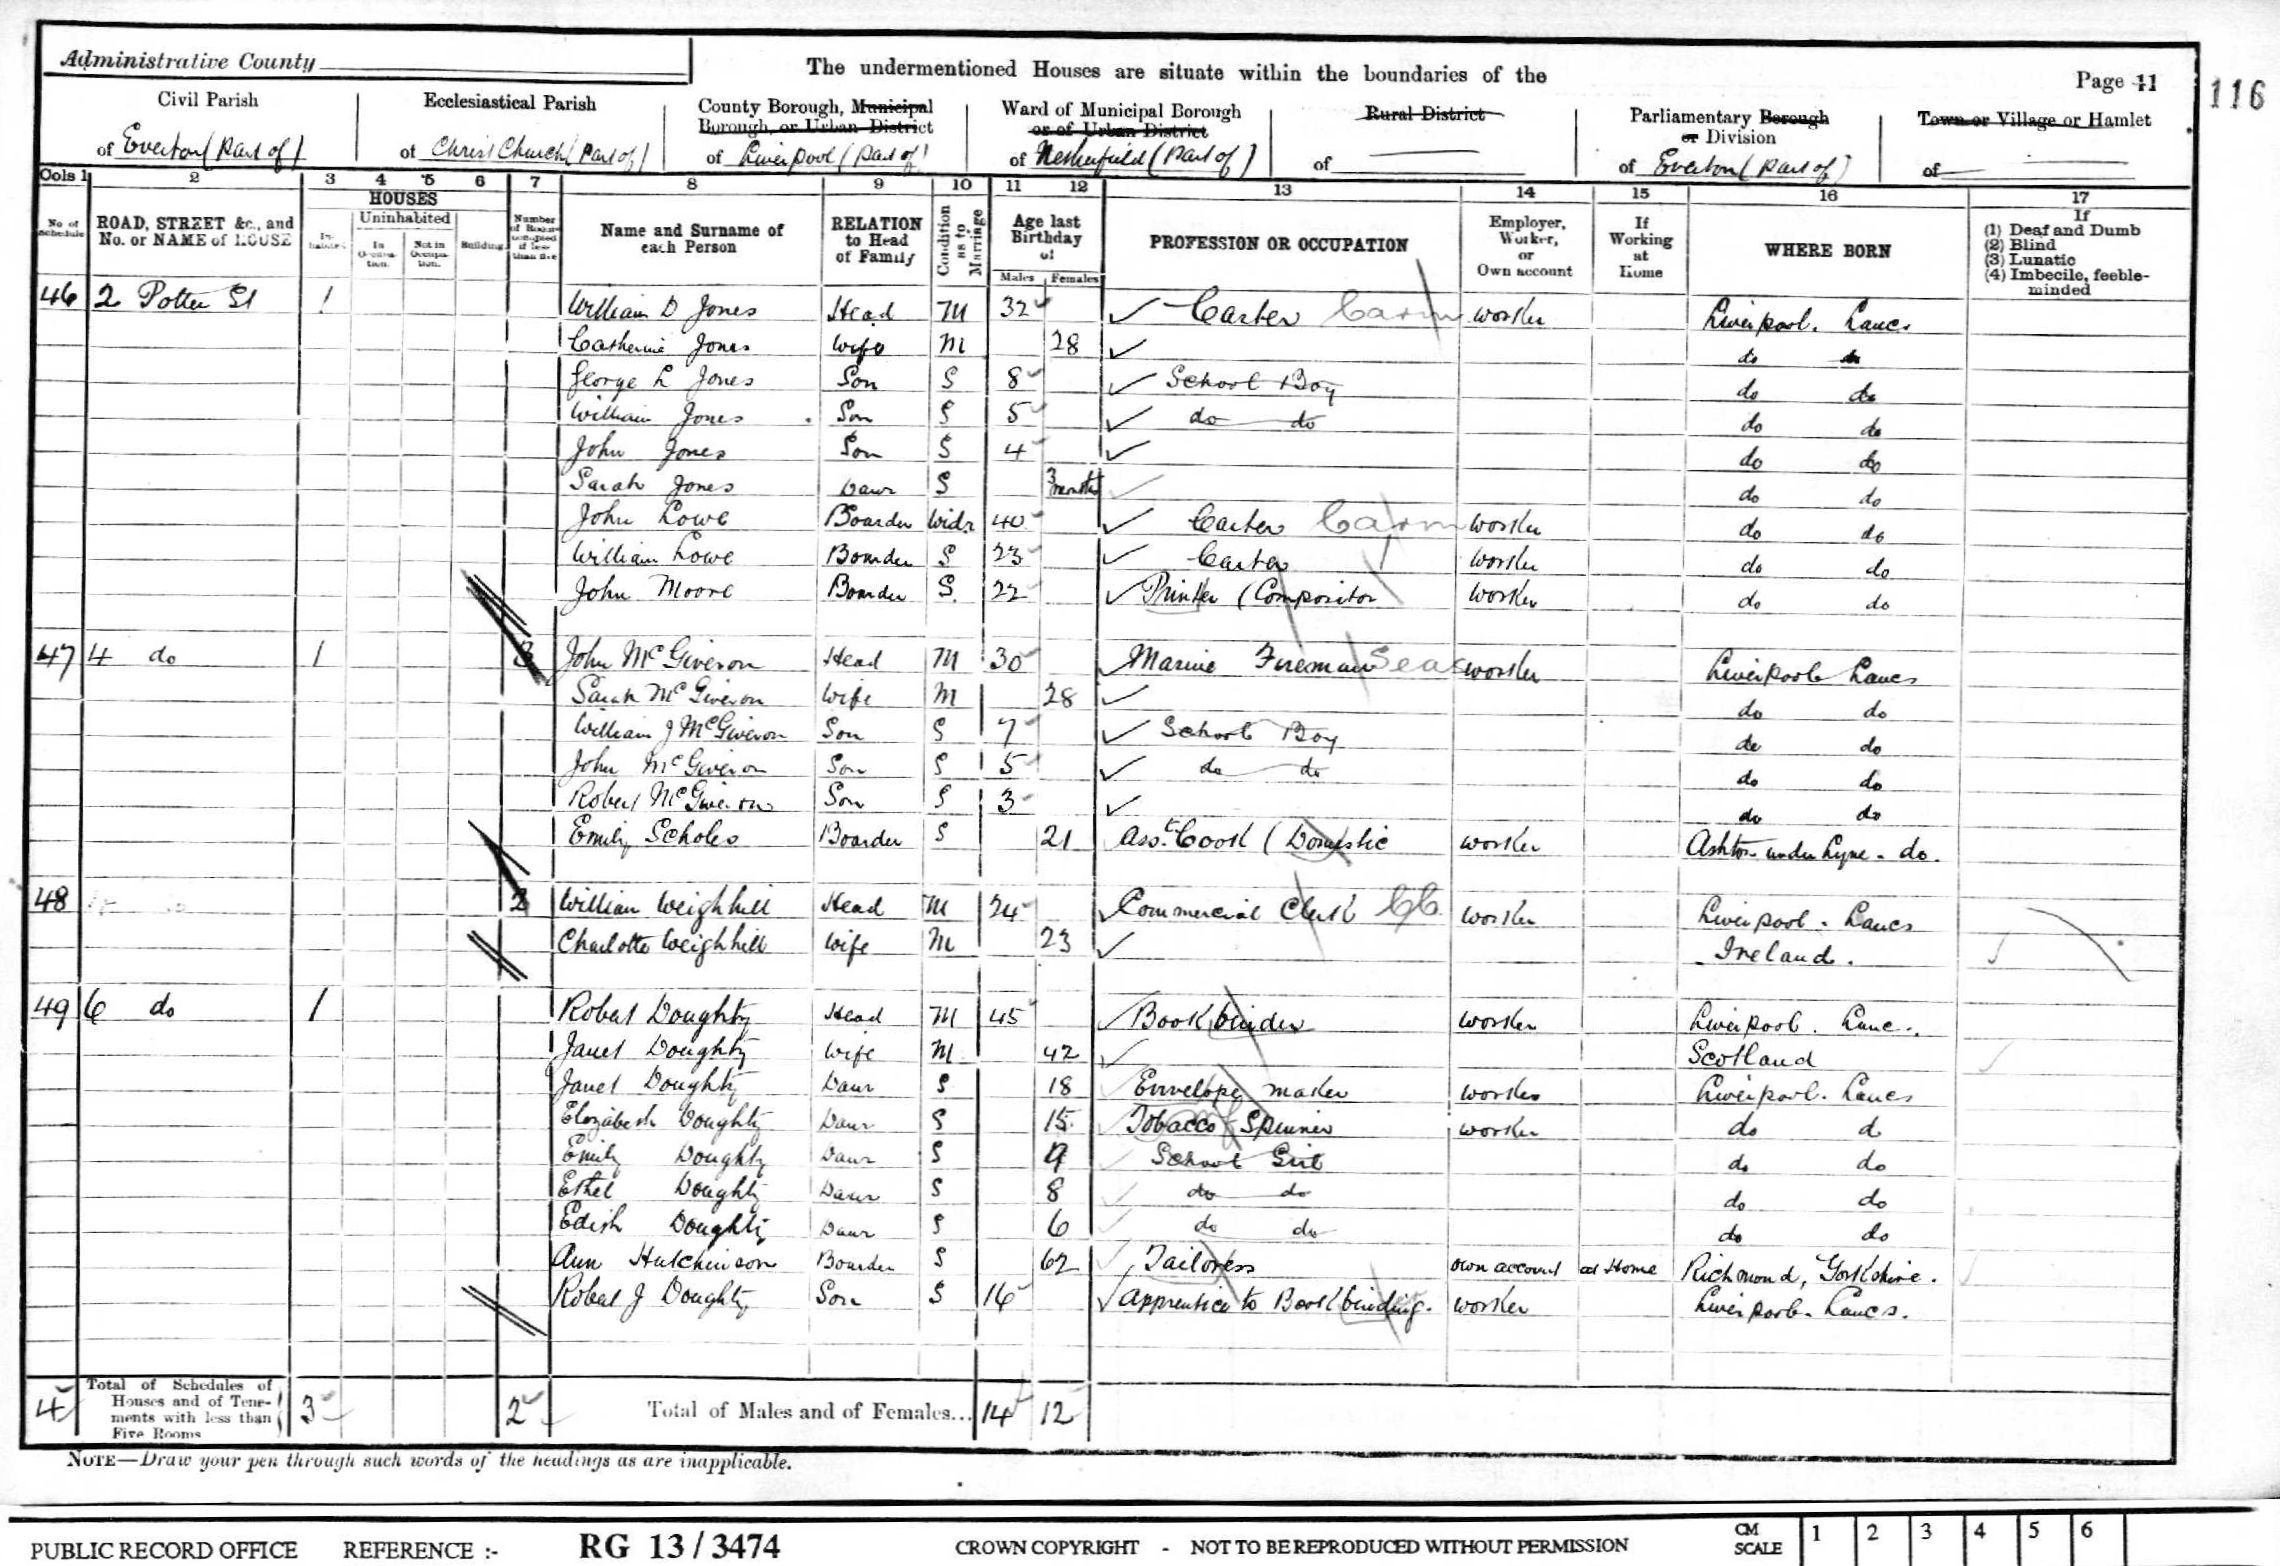 Administrative County
The undermentioned Houses are situate within the boundaries of the
Page 11
116
Civil Parish
of Everton (Part of)
Ecclesiastical Parish
of Christ Church (Part of)
County Borough, Municipal
Borough, or Urban District
of Liverpool (Part of)
Ward of Municipal Borough
or of Urban District
of Netherfield (Part of)
Rural District
of
Parliamentary Borough
or Division
of Everton (Part of)
Town or Village or Hamlet
of
Cols 1 2 3 4 5 6 7 8 9 10 11 12 13 14 15 16 17
No. of Schedule
ROAD, STREET &c., and No. or NAME of HOUSE
HOUSES
Inhabited
Uninhabited
In Occupation.
Not in Occupation.
Building
Number of Rooms occupied if less than five
Name and Surname of each Person
RELATION to Head of Family
Condition as to Marriage
Age last Birthday of
Males Females
PROFESSION OR OCCUPATION
Employer, Worker, or Own account
If Working at Home
WHERE BORN
If
(1) Deaf and Dumb
(2) Blind
(3) Lunatic
(4) Imbecile, feeble-minded
46 2 Potter St 1 William D Jones Head M 32 Carter Carm worker Liverpool. Lancs
Catherine Jones Wife M 28 do do
George L Jones Son S 8 School Boy do do
William Jones Son S 5 do do do do
John Jones Son S 4 do do
Sarah Jones Daur S 3 months do do
John Lowe Boarder Widr 40 Carter Carm worker do do
William Lowe Boarder S 23 Carter worker do do
John Moore Boarder S 22 Printer (Compositor worker do do
47 4 do 1 3 John McGiveron Head M 30 Marine Fireman Seas worker Liverpool Lancs
Sarah McGiveron Wife M 28 do do
William J McGiveron Son S 7 School Boy do do
John McGiveron Son S 5 do do do do
Robert McGiveron Son S 3 do do
Emily Scholes Boarder S 21 Asst. Cook (Domestic worker Ashton under Lyne - do.
48 2 William Weighhill Head M 24 Commercial Clerk CC worker Liverpool - Lancs
Charlotte Weighhill Wife M 23 Ireland.
49 6 do 1 Robert Doughty Head M 45 Bookbinder worker Liverpool. Lanc.
Janet Doughty Wife M 42 Scotland
Janet Doughty Daur S 18 Envelope maker worker Liverpool. Lancs
Elizabeth Doughty Daur S 15 Tobacco Spinner worker do d
Emily Doughty Daur S 9 School Girl do do
Ethel Doughty Daur S 8 do do do do
Edith Doughty Daur S 6 do do do do
Ann Hutchinson Boarder S 62 Tailoress own account at Home Richmond, Yorkshire.
Robert J Doughty Son S 16 Apprentice to Bookbinding. worker Liverpool. Lancs.
4 Total of Schedules of Houses and of Tenements with less than Five Rooms 3 2 Total of Males and of Females... 14 12
NOTE—Draw your pen through such words of the headings as are inapplicable.
PUBLIC RECORD OFFICE REFERENCE :- RG 13 / 3474 CROWN COPYRIGHT - NOT TO BE REPRODUCED WITHOUT PERMISSION CM SCALE 1 2 3 4 5 6